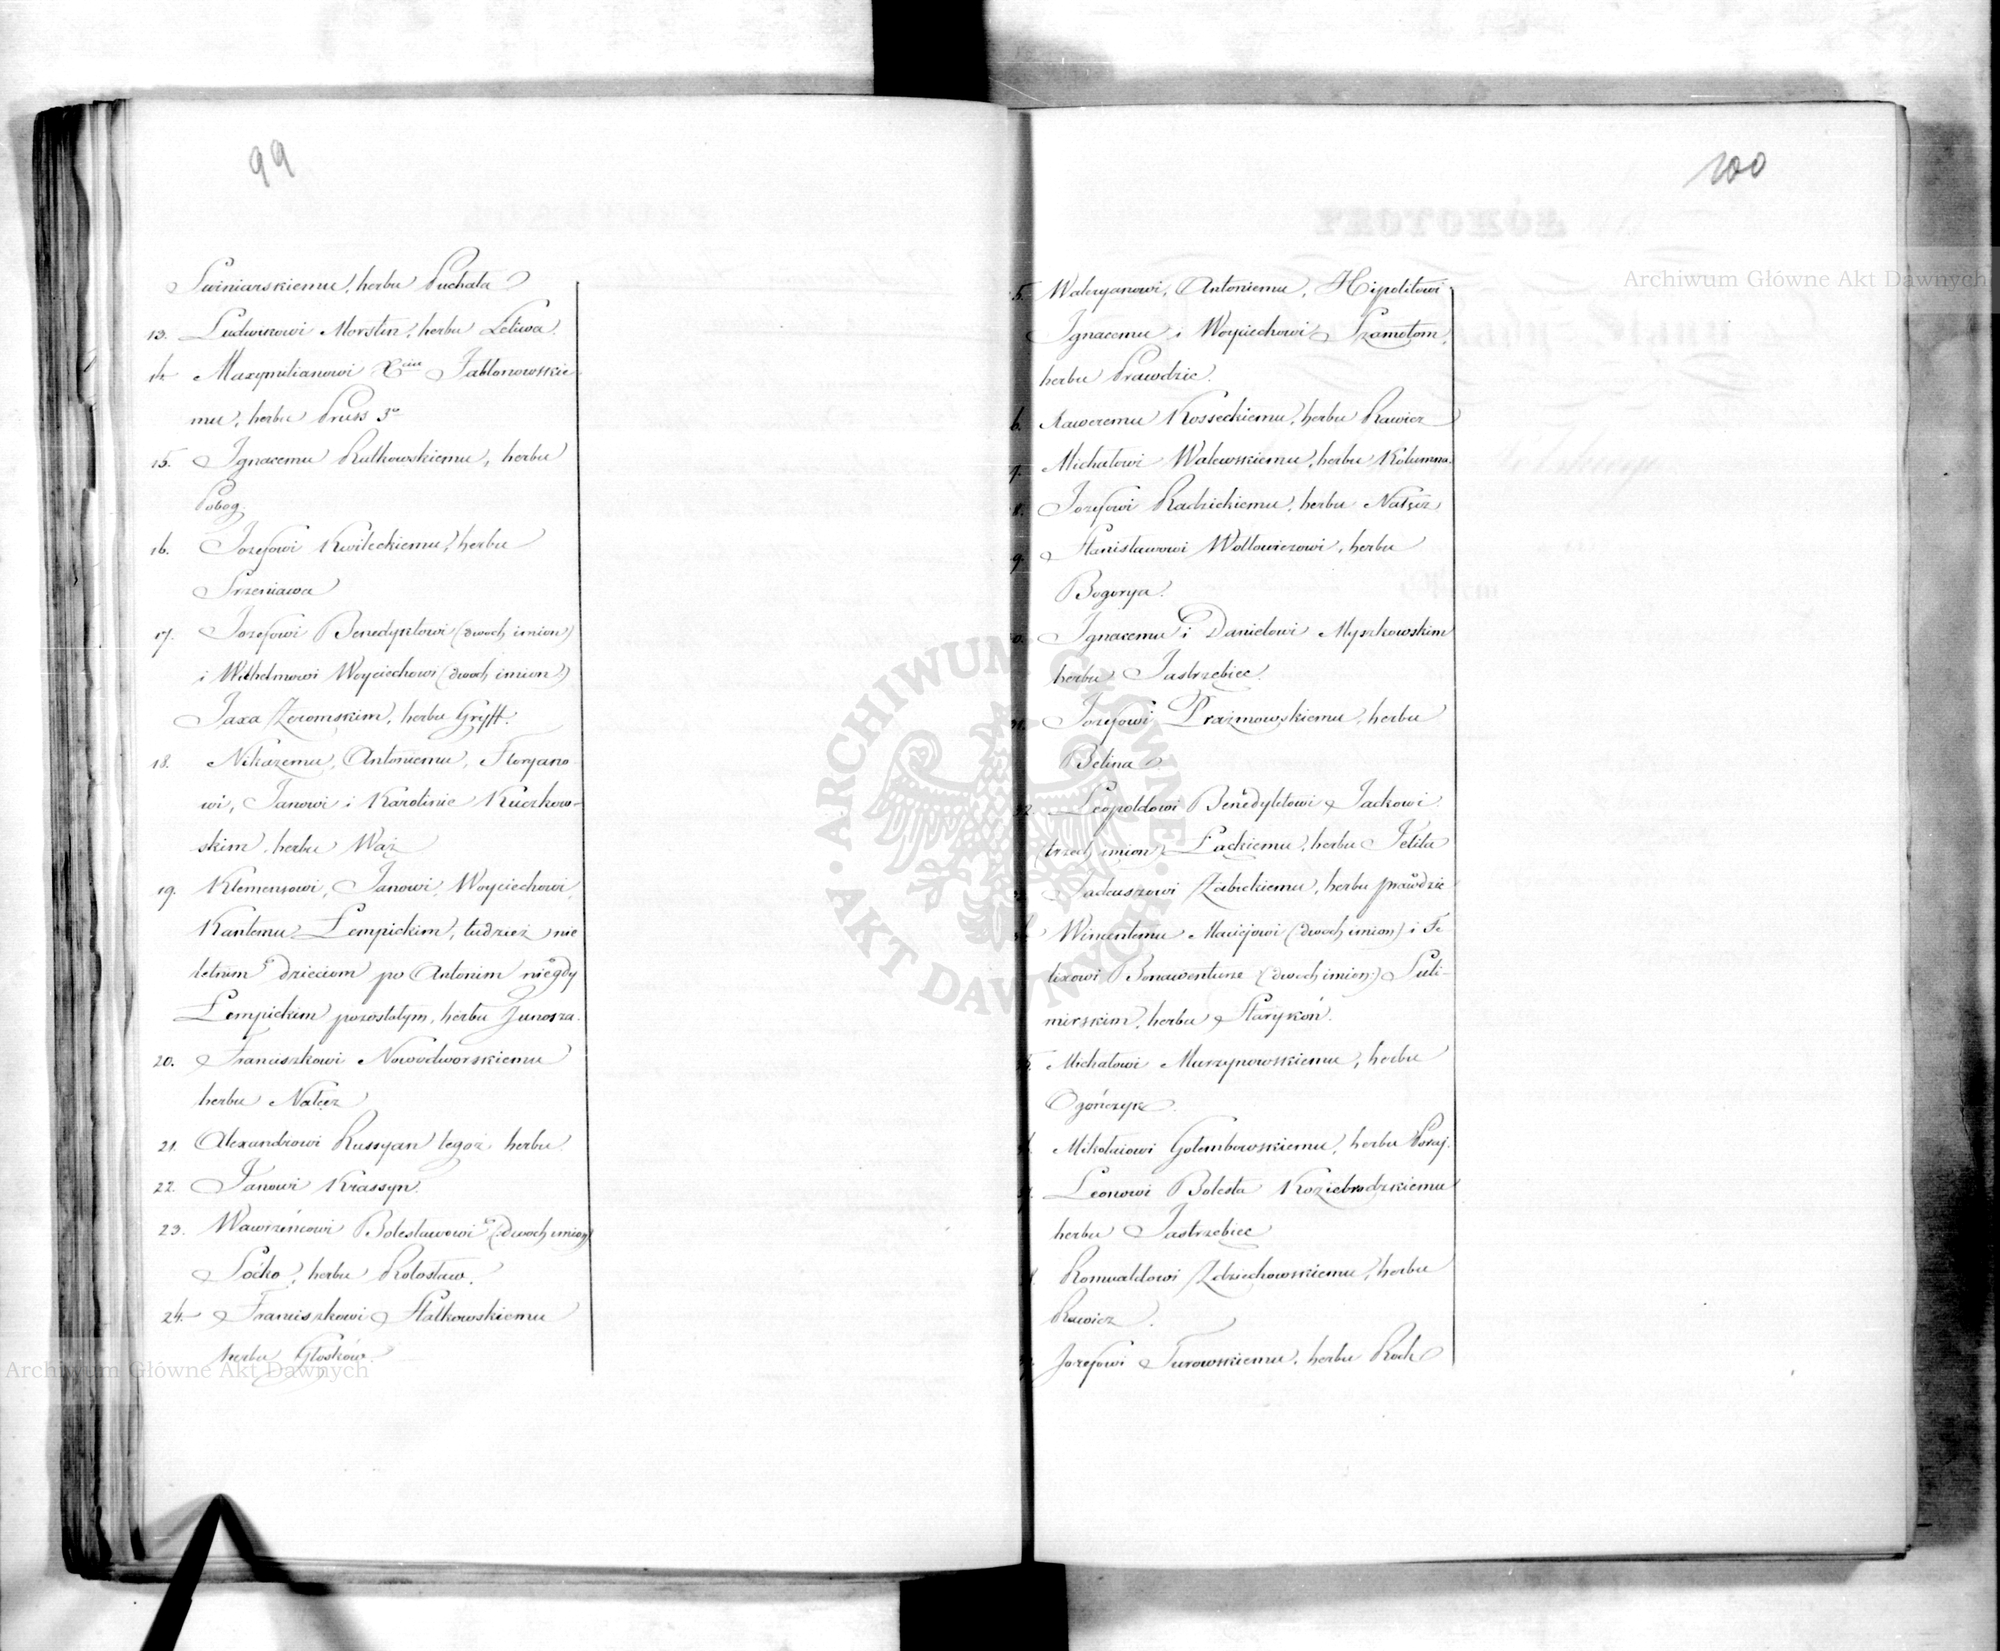 99
Swiniarskiemu, herbu Puchala
13. Ludwikowi Morstin, herbu Leliwa.
14. Maxymilianowi Xciu Jabłonowskie-
mu, herbu Pruss 3o
15. Ignacemu Rutkowskiemu, herbu
Pobog.
16. Jozefowi Kwileckiemu, herbu
Srzeniawa
17. Jozefowi Benedyktowi (dwoch imion)
i Wilhelmowi Woyciechowi (dwoch imion)
Jaxa Żeromskim, herbu Gryff.
18. Nikazemu, Antoniemu, Floryano-
wi, Janowi i Karolinie Kuczkow-
skim, herbu Wąż
19. Klemensowi, Janowi, Woyciechowi,
Kantemu Łempickim, tudzież nie
letnim dzieciom po Antonim niegdy
Łempickim pozostałym, herbu Junosza.
20. Franciszkowi Nowodworskiemu
herbu Nałęcz
21. Alexandrowi Russyan tegoż herbu.
22. Janowi Krassyn.
23. Wawrzeńcowi Bolesławowi (dwoch imion)
Soćko, herbu Rolosław.
24. Franciszkowi Stalkowskiemu
herbu Głosków.
100
5. Waleryanowi, Antoniemu, Hipolitowi
Ignacemu i Woyciechowi Szamotom,
herbu Prawdzic.
6. Xaweremu Kosseckiemu, herbu Rawicz
7. Michałowi Walewskiemu, herbu Kolumna.
8. Jozefowi Radzickiemu, herbu Nałęcz
9. Stanisławowi Wołłowiczowi, herbu
Bogorya.
0. Ignacemu i Danielowi Myszkowskim
herbu Jastrzębiec.
31. Jozefowi Prażmowskiemu, herbu
Belina
32. Leopoldowi Benedyktowi Jackowi
(trzech imion) Łąckiemu, herbu Jelita
Tadeuszowi Żabickiemu, herbu prawdzic
34. Wincentemu Maciejowi (dwoch imion) i Fe
lixowi Bonawenturze (dwoch imion) Suli-
mirskim, herbu Starykoń.
5. Michałowi Murzynowskiemu, herbu
Ogończyk.
6. Mikołaiowi Gołembowskiemu, herbu Poraj.
7. Leonowi Bolesta Koziebrodzkiemu
herbu Jastrzębiec
Romualdowi Zdziechowskiemu, herbu
Rawicz.
Jozefowi Turowskiemu, herbu Roch
Archiwum Główne Akt Dawnych
Archiwum Główne Akt Dawnych
ARCHIWUM GŁÓWNE AKT DAWNYCH